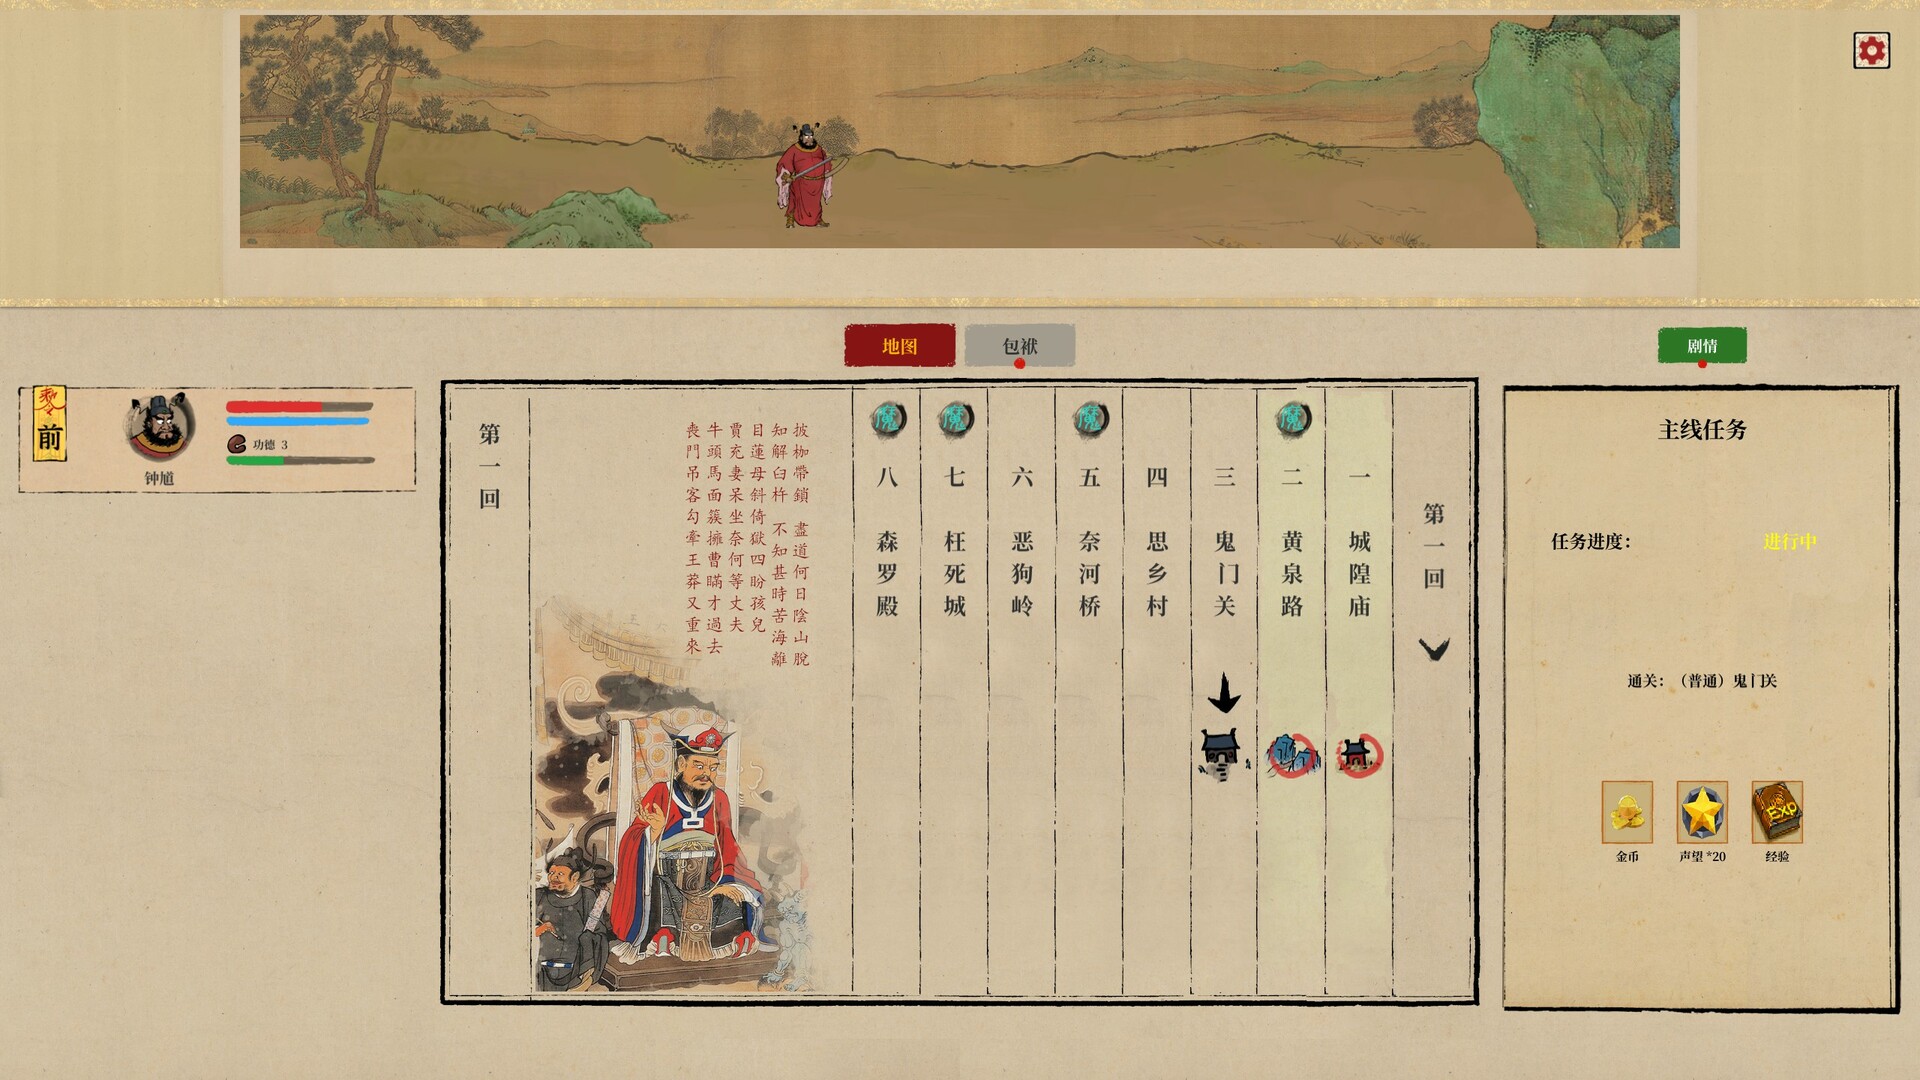 地图
包袱
剧情
令
前
钟馗
功德 3
第一回
披枷帶鎖 盡道何日陰山脫
知解臼杵 不知甚時苦海離
目蓮母斜倚獄四盼孩兒
賈充妻呆坐奈何等丈夫
牛頭馬面簇擁曹瞞才過去
喪門吊客勾牽王莽又重來
第一回
一 城隍庙
魔
二 黄泉路
三 鬼门关
四 思乡村
魔
五 奈河桥
六 恶狗岭
魔
七 枉死城
魔
八 森罗殿
主线任务
任务进度：
进行中
通关：（普通）鬼门关
EXP
金币
声望 *20
经验